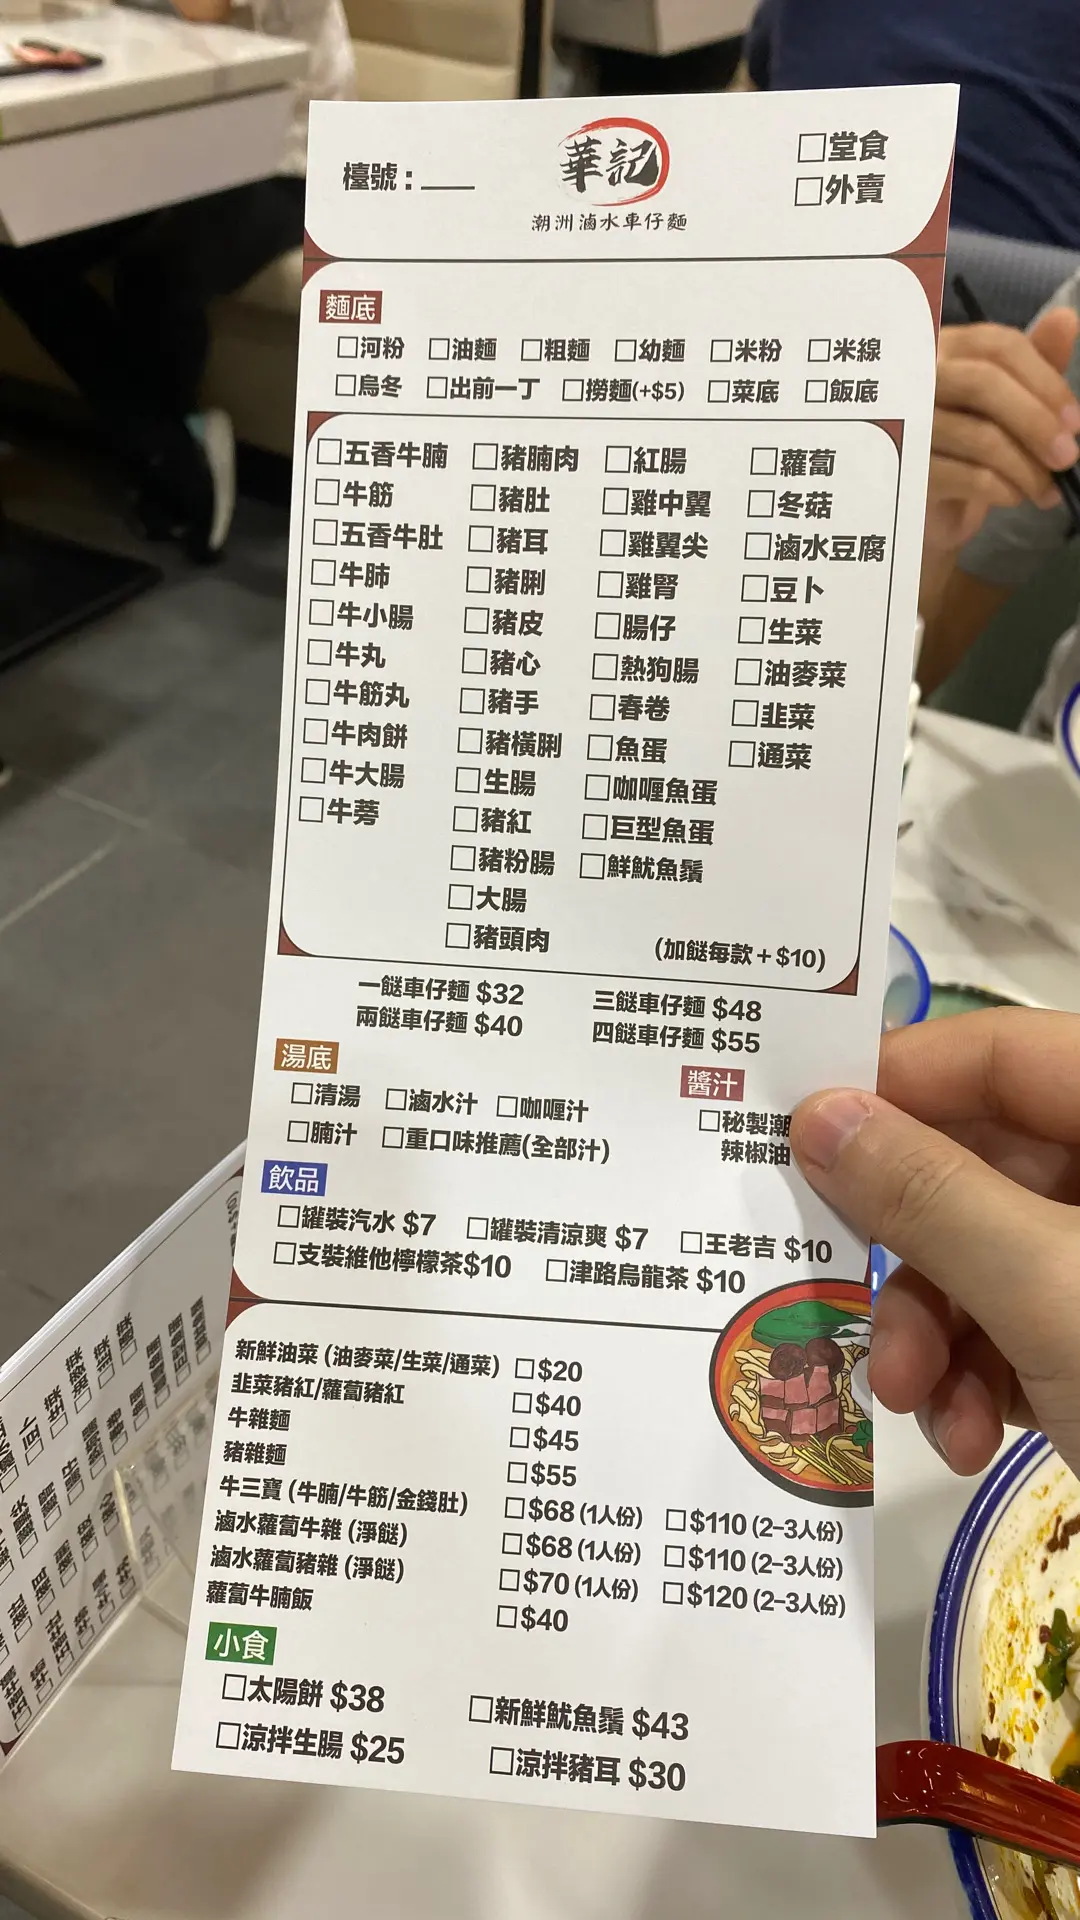 檯號：
華記
潮洲滷水車仔麵
□堂食
□外賣
麵底
□河粉 □油麵 □粗麵 □幼麵 □米粉 □米線
□烏冬 □出前一丁 □撈麵(+$5) □菜底 □飯底
□五香牛腩 □豬腩肉 □紅腸 □蘿蔔
□牛筋 □豬肚 □雞中翼 □冬菇
□五香牛肚 □豬耳 □雞翼尖 □滷水豆腐
□牛肺 □豬脷 □雞腎 □豆卜
□牛小腸 □豬皮 □腸仔 □生菜
□牛丸 □豬心 □熱狗腸 □油麥菜
□牛筋丸 □豬手 □春卷 □韭菜
□牛肉餅 □豬橫脷 □魚蛋 □通菜
□牛大腸 □生腸 □咖喱魚蛋
□牛蒡 □豬紅 □巨型魚蛋
□豬粉腸 □鮮魷魚鬚
□大腸
□豬頭肉 (加餸每款+$10)
一餸車仔麵 $32 三餸車仔麵 $48
兩餸車仔麵 $40 四餸車仔麵 $55
湯底
□清湯 □滷水汁 □咖喱汁
□腩汁 □重口味推薦(全部汁)
醬汁
□秘製潮
辣椒油
飲品
□罐裝汽水 $7 □罐裝清涼爽 $7 □王老吉 $10
□支裝維他檸檬茶$10 □津路烏龍茶 $10
新鮮油菜 (油麥菜/生菜/通菜) □$20
韭菜豬紅/蘿蔔豬紅 □$40
牛雜麵 □$45
豬雜麵 □$55
牛三寶 (牛腩/牛筋/金錢肚) □$68 (1人份) □$110 (2-3人份)
滷水蘿蔔牛雜 (淨餸) □$68 (1人份) □$110 (2-3人份)
滷水蘿蔔豬雜 (淨餸) □$70 (1人份) □$120 (2-3人份)
蘿蔔牛腩飯 □$40
小食
□太陽餅 $38 □新鮮魷魚鬚 $43
□涼拌生腸 $25 □涼拌豬耳 $30